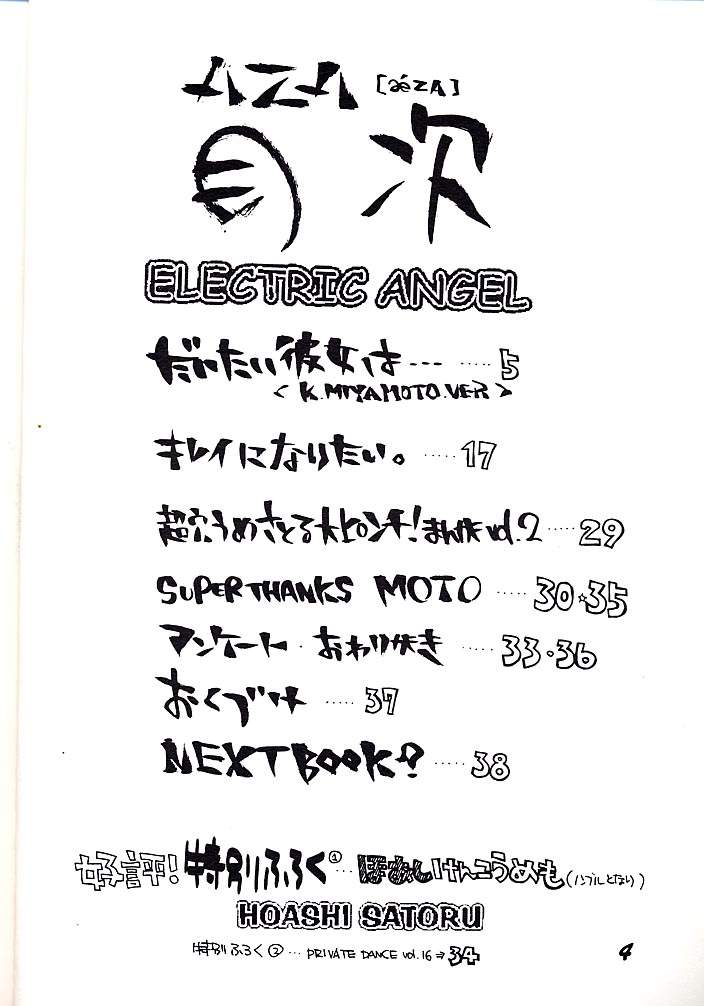 AZA [aézA]
目次
ELECTRIC ANGEL
だいたい彼女は… ····· 5
<K.MIYAMOTO.VER>
キレイになりたい。 ····· 17
超穴うめさとる大ピンチ!まんが vol.2 ····· 29
SUPER THANKS MOTO ····· 30☆35
アンケート・おわりがき ····· 33・36
おくづけ ····· 37
NEXT BOOK? ····· 38
好評!特別ふろく① ··· ほあしけんこうめも(ノンブルとなり)
HOASHI SATORU
特別ふろく② ··· PRIVATE DANCE vol.16⇒34
4